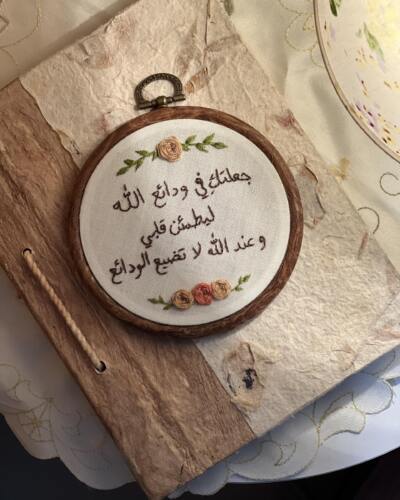 جعلتك في ودائع الله
ليطمئن قلبي
وعند الله لا تضيع الودائع